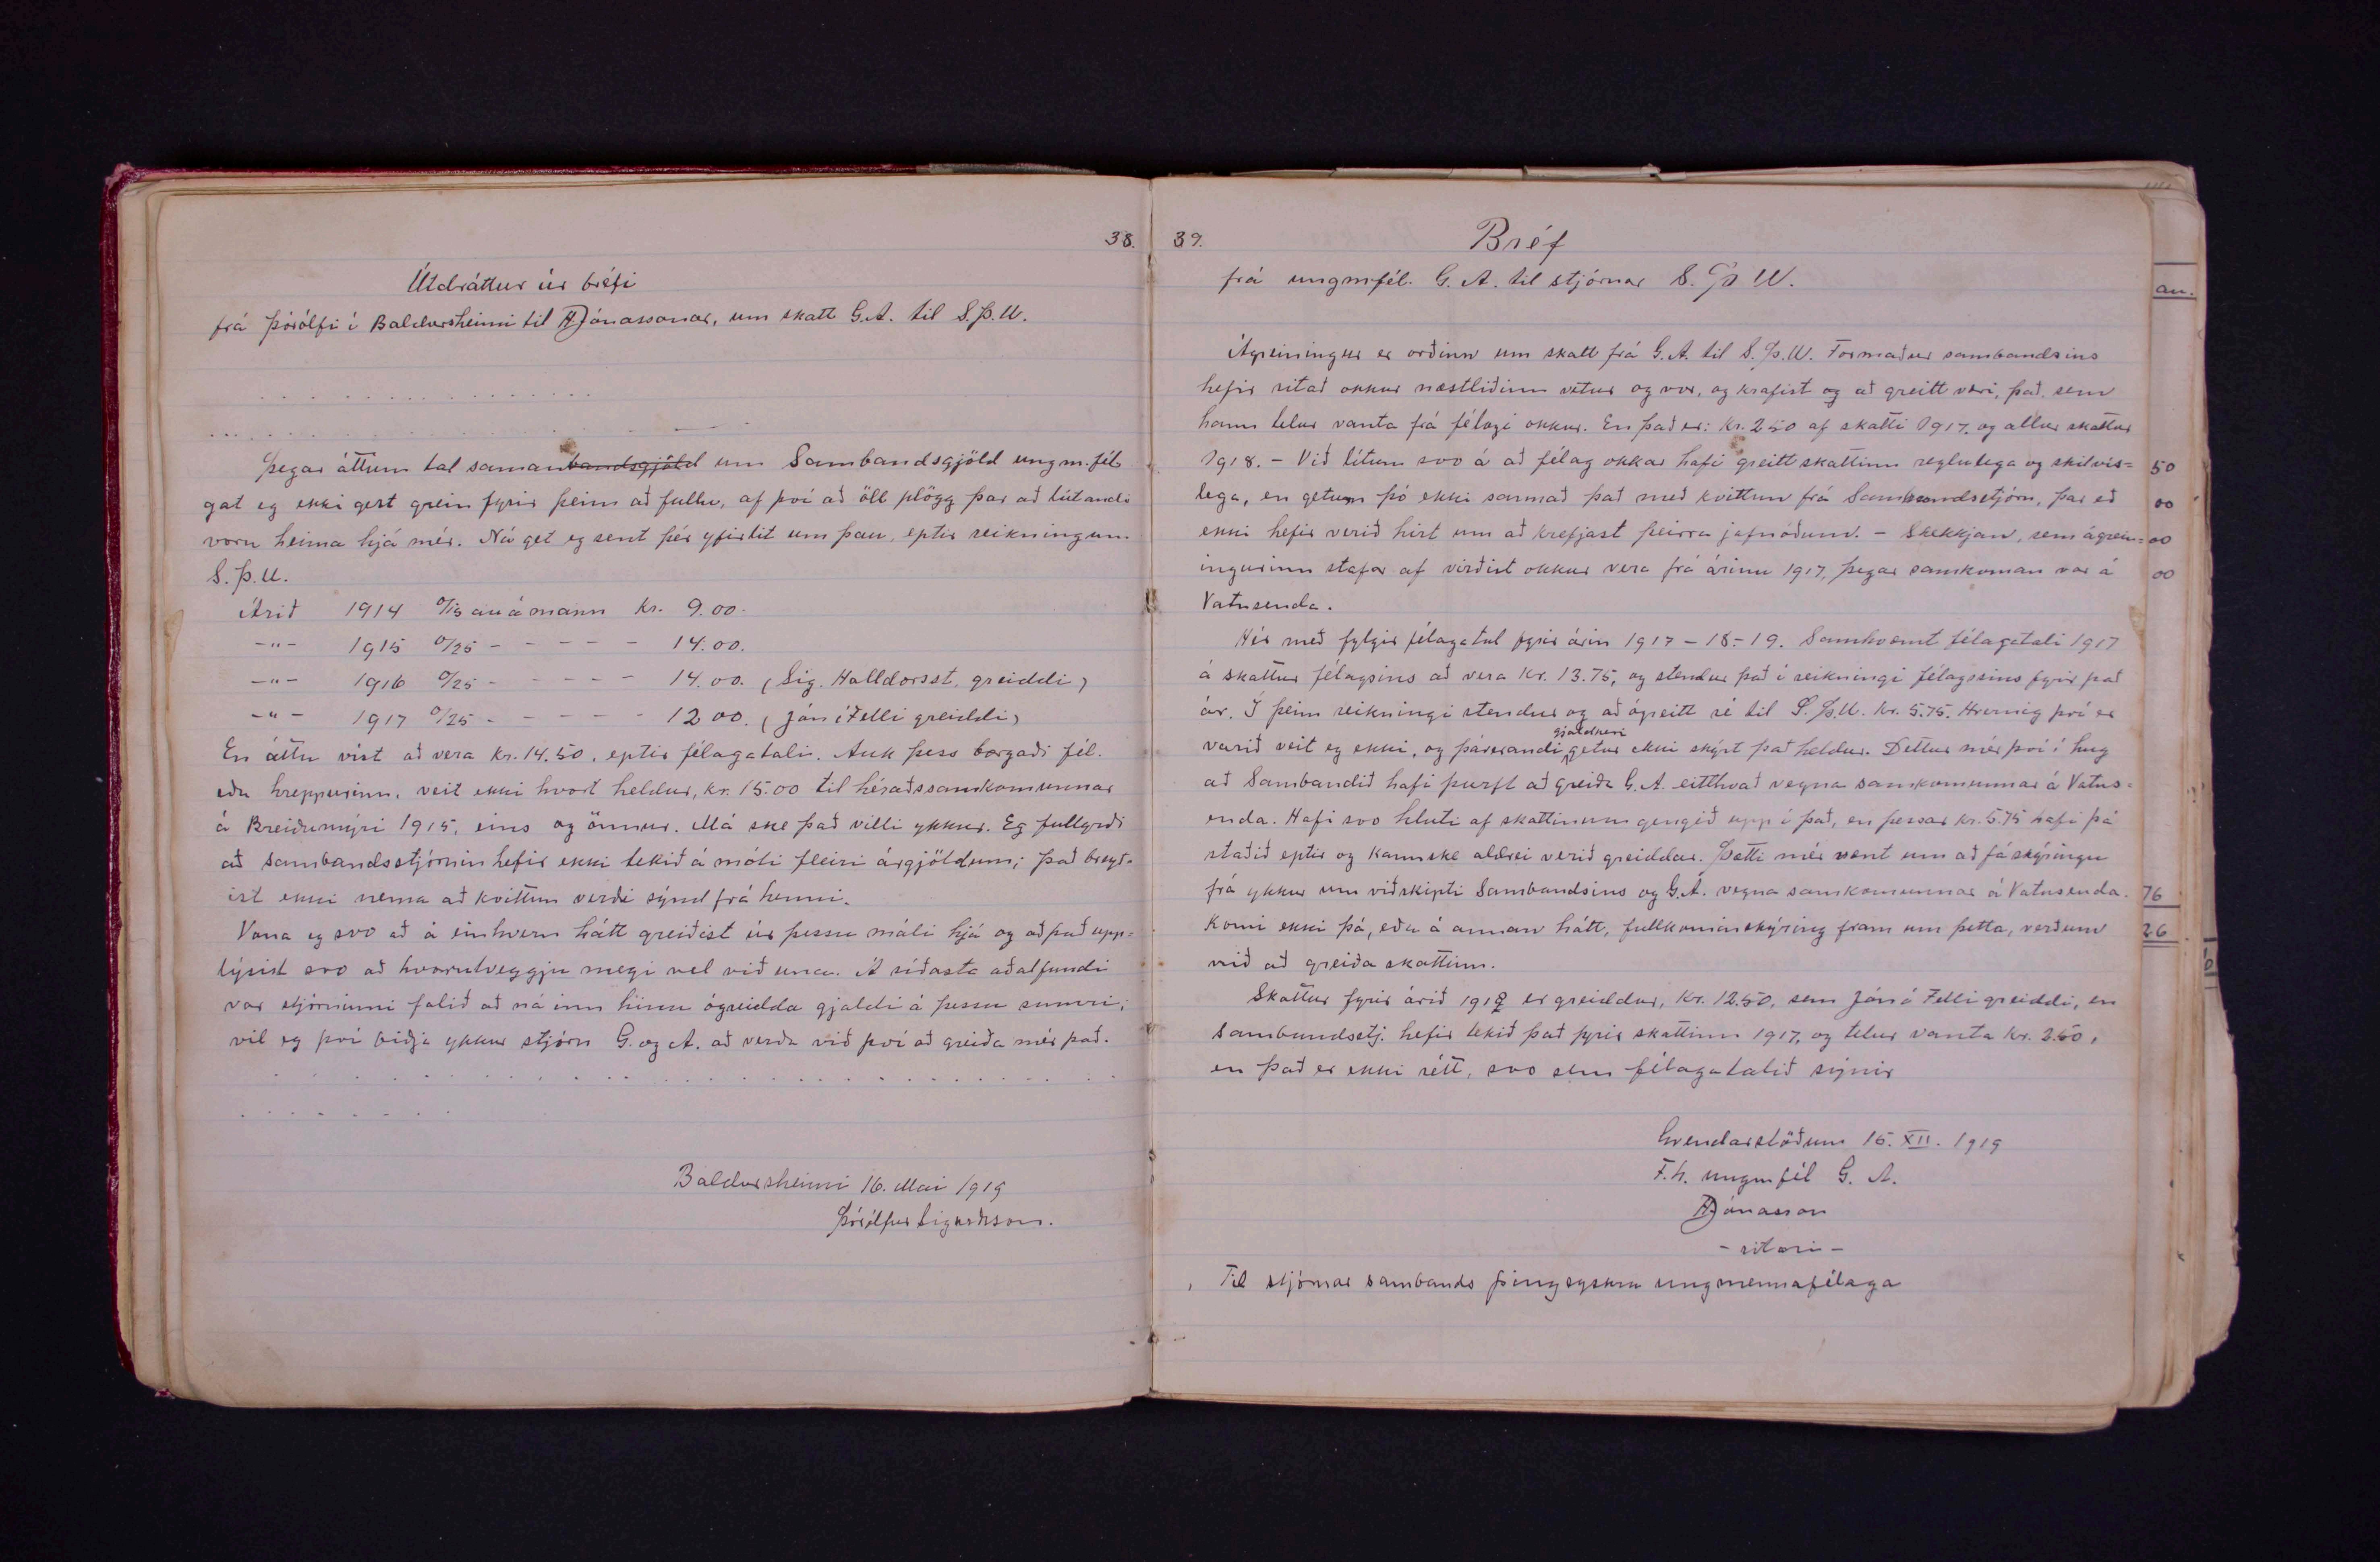 38.
Útdráttur úr bréfi
frá Þórólfi í Baldursheimi til HJónassonar, um skatt G.A. til S.Þ.U.
Þegar áttum tal saman bandsgjöld um Sambandsgjöld ungm.fél
gat eg ekki gert grein fyrir þeim að fullu, af því að öll plögg þar að lútandi
voru heima hjá mér. Nú get eg sent þér yfirlit um þau, eptir reikningum
S.Þ.U.
Árið 1914 0/15 au á mann Kr. 9.00.
-"- 1915 0/25 - - - - - 14.00.
-"- 1916 0/25 - - - - - 14.00. (Sig. Halldorsst. greiddi)
-"- 1917 0/25 - - - - - 12 00. (Jón í Felli greiddi)
En áttu víst að vera kr. 14.50, eptir félagatali. Auk þess borgaði fél.
eða hreppurinn, veit ekki hvort heldur, kr. 15.00 til héraðssamkomunnar
á Breiðumýri 1915, eins og önnur. Má ske það villi ykkur. Eg fullyrði
að sambandsstjórnin hefir ekki tekið á móti fleiri árgjöldum; það breyt-
ist ekki nema að kvittun verði sýnd frá henni.
Vona eg svo að á einhvern hátt greiðist úr þessu máli hjá og að það upp=
lýsist svo að hvorutveggju megi vel við una. Á síðasta aðalfundi
var stjórninni falið að ná inn hinu ógreidda gjaldi á þessu sumri;
vil eg því biðja ykkur stjórn G. og A. að verða við því að greiða mér það.
Baldursheimi 16. Mai 1919
Þórólfur Sigurðsson.
39.
Bréf
frá ungmfél. G. A. til stjórnar S. Þ U.
Ágreiningur er orðinn um skatt frá G.A. til S.Þ.U. Formaður sambandsins
hefir ritað okkur næstliðinn vetur og vor, og krafist og að greitt væri, það, sem
hann telur vanta frá félagi okkur. En það er: Kr. 250 af skatti 1917, og allur skattur
1918. - Við lítum svo á að félag okkar hafi greitt skattinn reglulega og skilvís=
lega, en getum þó ekki sannað það með kvittun frá Sambandsstjórn, þar eð
ekki hefir verið hirt um að krefjast þeirra jafnóðum. - Skekkjan, sem ágrein=
ingurinn stafar af virðist okkur vera frá árinu 1917, þegar samkoman var á
Vatnsenda.
Hér með fylgir félagatal fyrir árin 1917 - 18 - 19. Samkvæmt félagatali 1917
á skattur félagsins að vera Kr. 13.75, og stendur það í reikningi félagssins fyrir það
ár. Í þeim reikningi stendur og að ógreitt sé til S.Þ.U. Kr. 5.75. Hvernig því er
gjaldkeri
varið veit eg ekki, og þáverandi getur ekki skýrt það heldur. Dettur mér því í hug
að Sambandið hafi þurft að greiða G.A. eitthvað vegna samkomunnar á Vatns=
enda. Hafi svo hluti af skattinum gengið upp í það, en þessar kr. 5.75 hafi þá
staðið eptir og kannske aldrei verið greiddar. Þætti mér vænt um að fá skýringu
frá ykkur um viðskipti Sambandsins og G.A. vegna samkomunnar á Vatnsenda.
Komi ekki þá, eða á annan hátt, fullkomin skýring fram um þetta, verðum
við að greiða skattinn.
Skattur fyrir árið 1918 er greiddur, Kr. 12.50, sem Jón á Felli greiddi, en
Sambandsstj. hefir tekið það fyrir skattinn 1917, og telur vanta Kr. 2.50,
en það er ekki rétt, svo sem félagatalið sýnir
Gvendarstöðum 15. XII. 1919
F.h. ungmfél G. A.
HJónasson
- ritari -
Til stjórnar sambands þingeyskra ungmennafélaga
au.
50
00
00
00
76
26